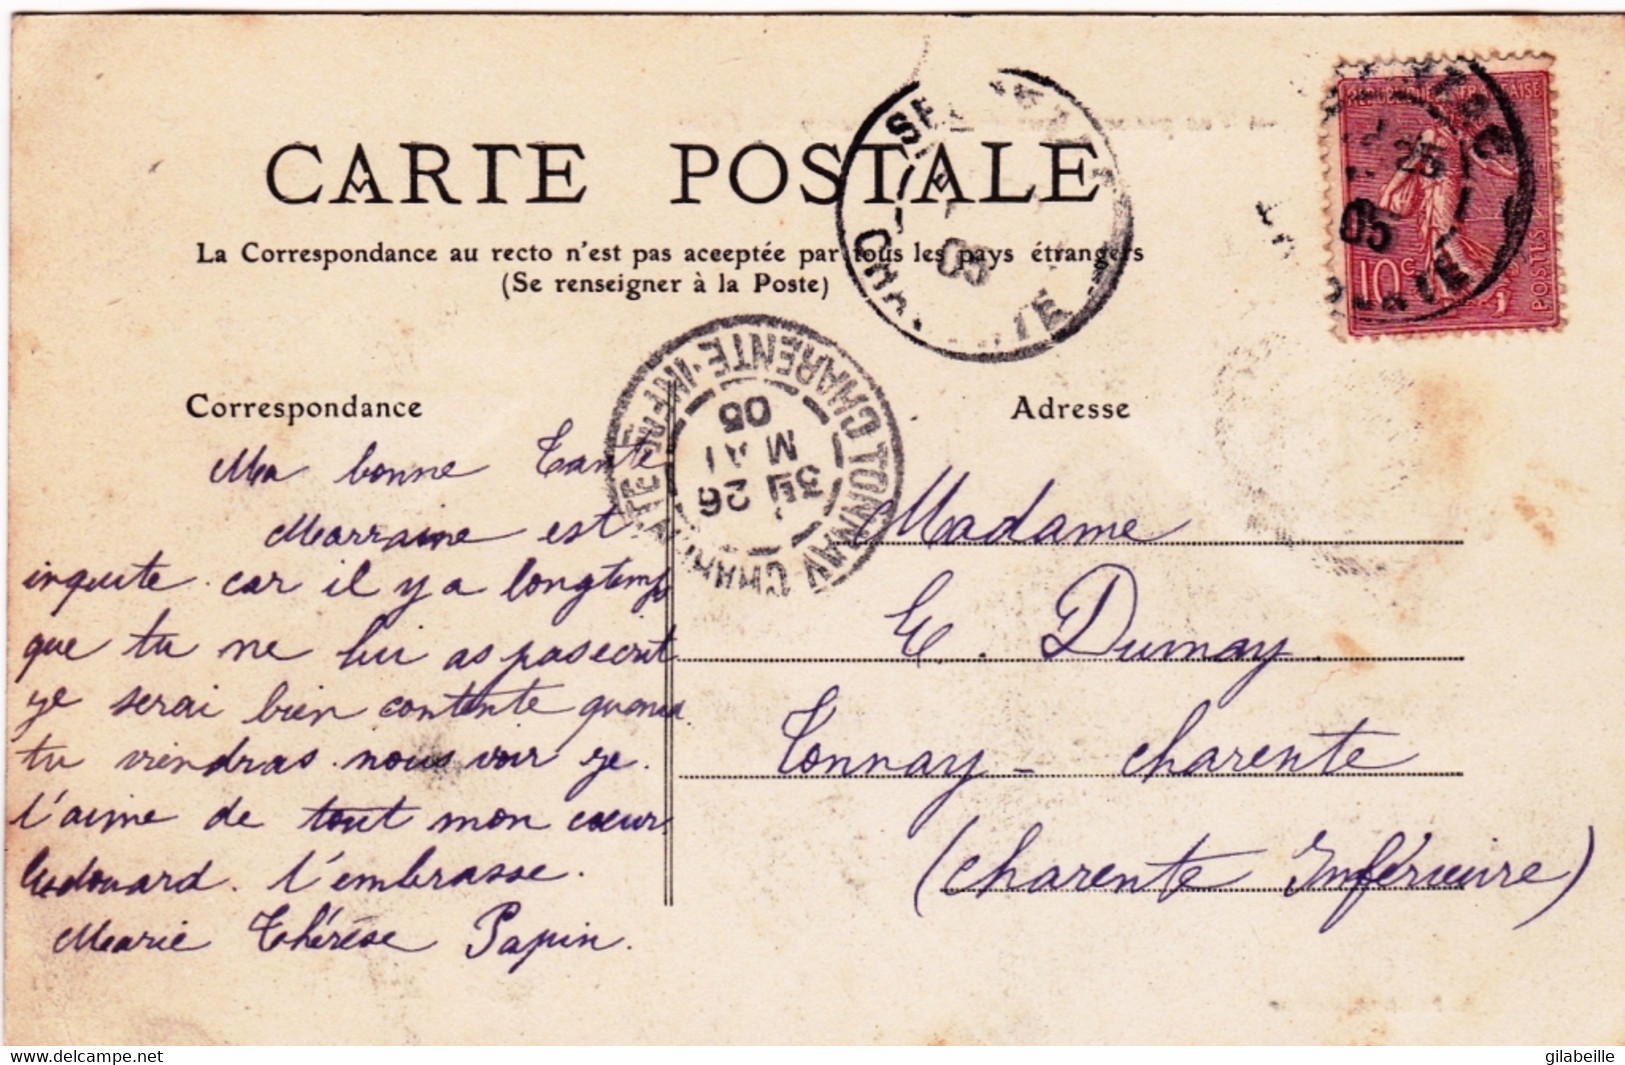 CARTE POSTALE
La Correspondance au recto n'est pas acceptée par tous les pays étrangers
(Se renseigner à la Poste)
REPUBLIQUE FRANÇAISE
10c
POSTES
25
05
05
TONNAY CHARENTE
CHARENTE-INFRE
3E 26
MAI
05
Correspondance
Ma bonne Tante
Marraine est
inquite car il y a longtemps
que tu ne lui as pas ecrit
je serai bien contente quand
tu viendras nous voir je
t'aime de tout mon cœur
Edouard t'embrasse.
Marie Thérèse Papin.
Adresse
Madame
E. Dumay
Tonnay-charente
(charente Inférieure)
gilabeille
delcampe.net